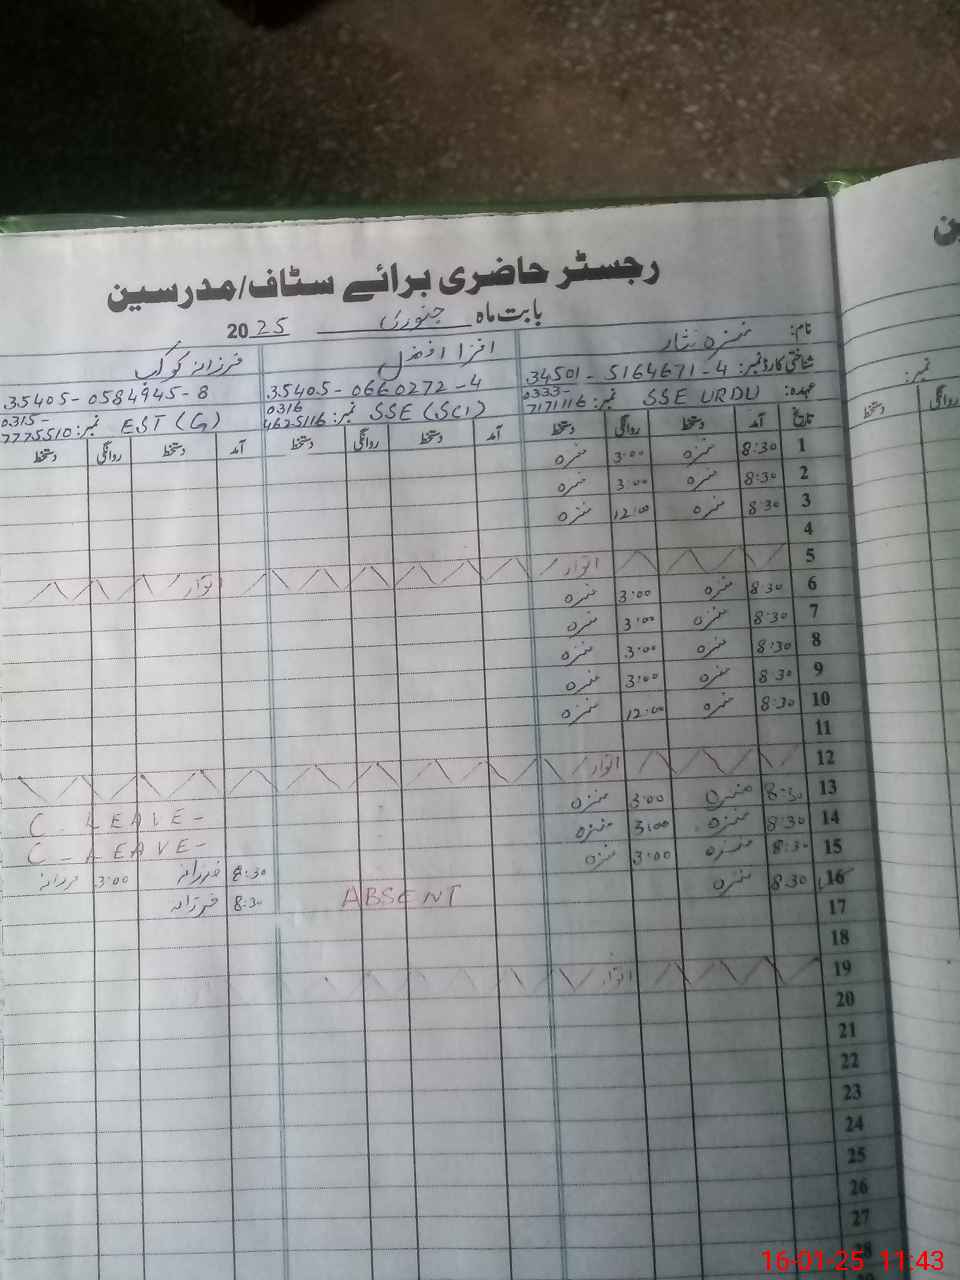 رجسٹر حاضری برائے سٹاف/مدرسین
بابت ماہ جنوری 2025
نام: منزہ نثار
اقرا افضل
فرزانہ کوکب
شناختی کارڈ نمبر: 34501-5164671-4
35405-0660272-4
35405-0584945-8
عہدہ: SSE URDU نمبر: 0333-7171116
SSE (SCI) نمبر: 0316 4625116
EST (G) نمبر: 0315-7775510
تاریخ آمد دستخط روانگی دستخط آمد دستخط روانگی دستخط آمد دستخط روانگی دستخط
1 8:30 منزہ 3:00 منزہ
2 8:30 منزہ 3:00 منزہ
3 8:30 منزہ 12:00 منزہ
4
5 اتوار اتوار
6 8:30 منزہ 3:00 منزہ
7 8:30 منزہ 3:00 منزہ
8 8:30 منزہ 3:00 منزہ
9 8:30 منزہ 3:00 منزہ
10 8:30 منزہ 12:00 منزہ
11
12 اتوار
13 8:30 منزہ 3:00 منزہ C-LEAVE-
14 8:30 منزہ 3:00 منزہ C-LEAVE-
15 8:30 منزہ 3:00 منزہ 8:30 فرزانہ 3:00 فرزانہ
16 8:30 منزہ ABSENT 8:30 فرزانہ
17
18
19 اتوار
20
21
22
23
24
25
26
27
28
نمبر:
روانگی دستخط
16-01-25 11:43